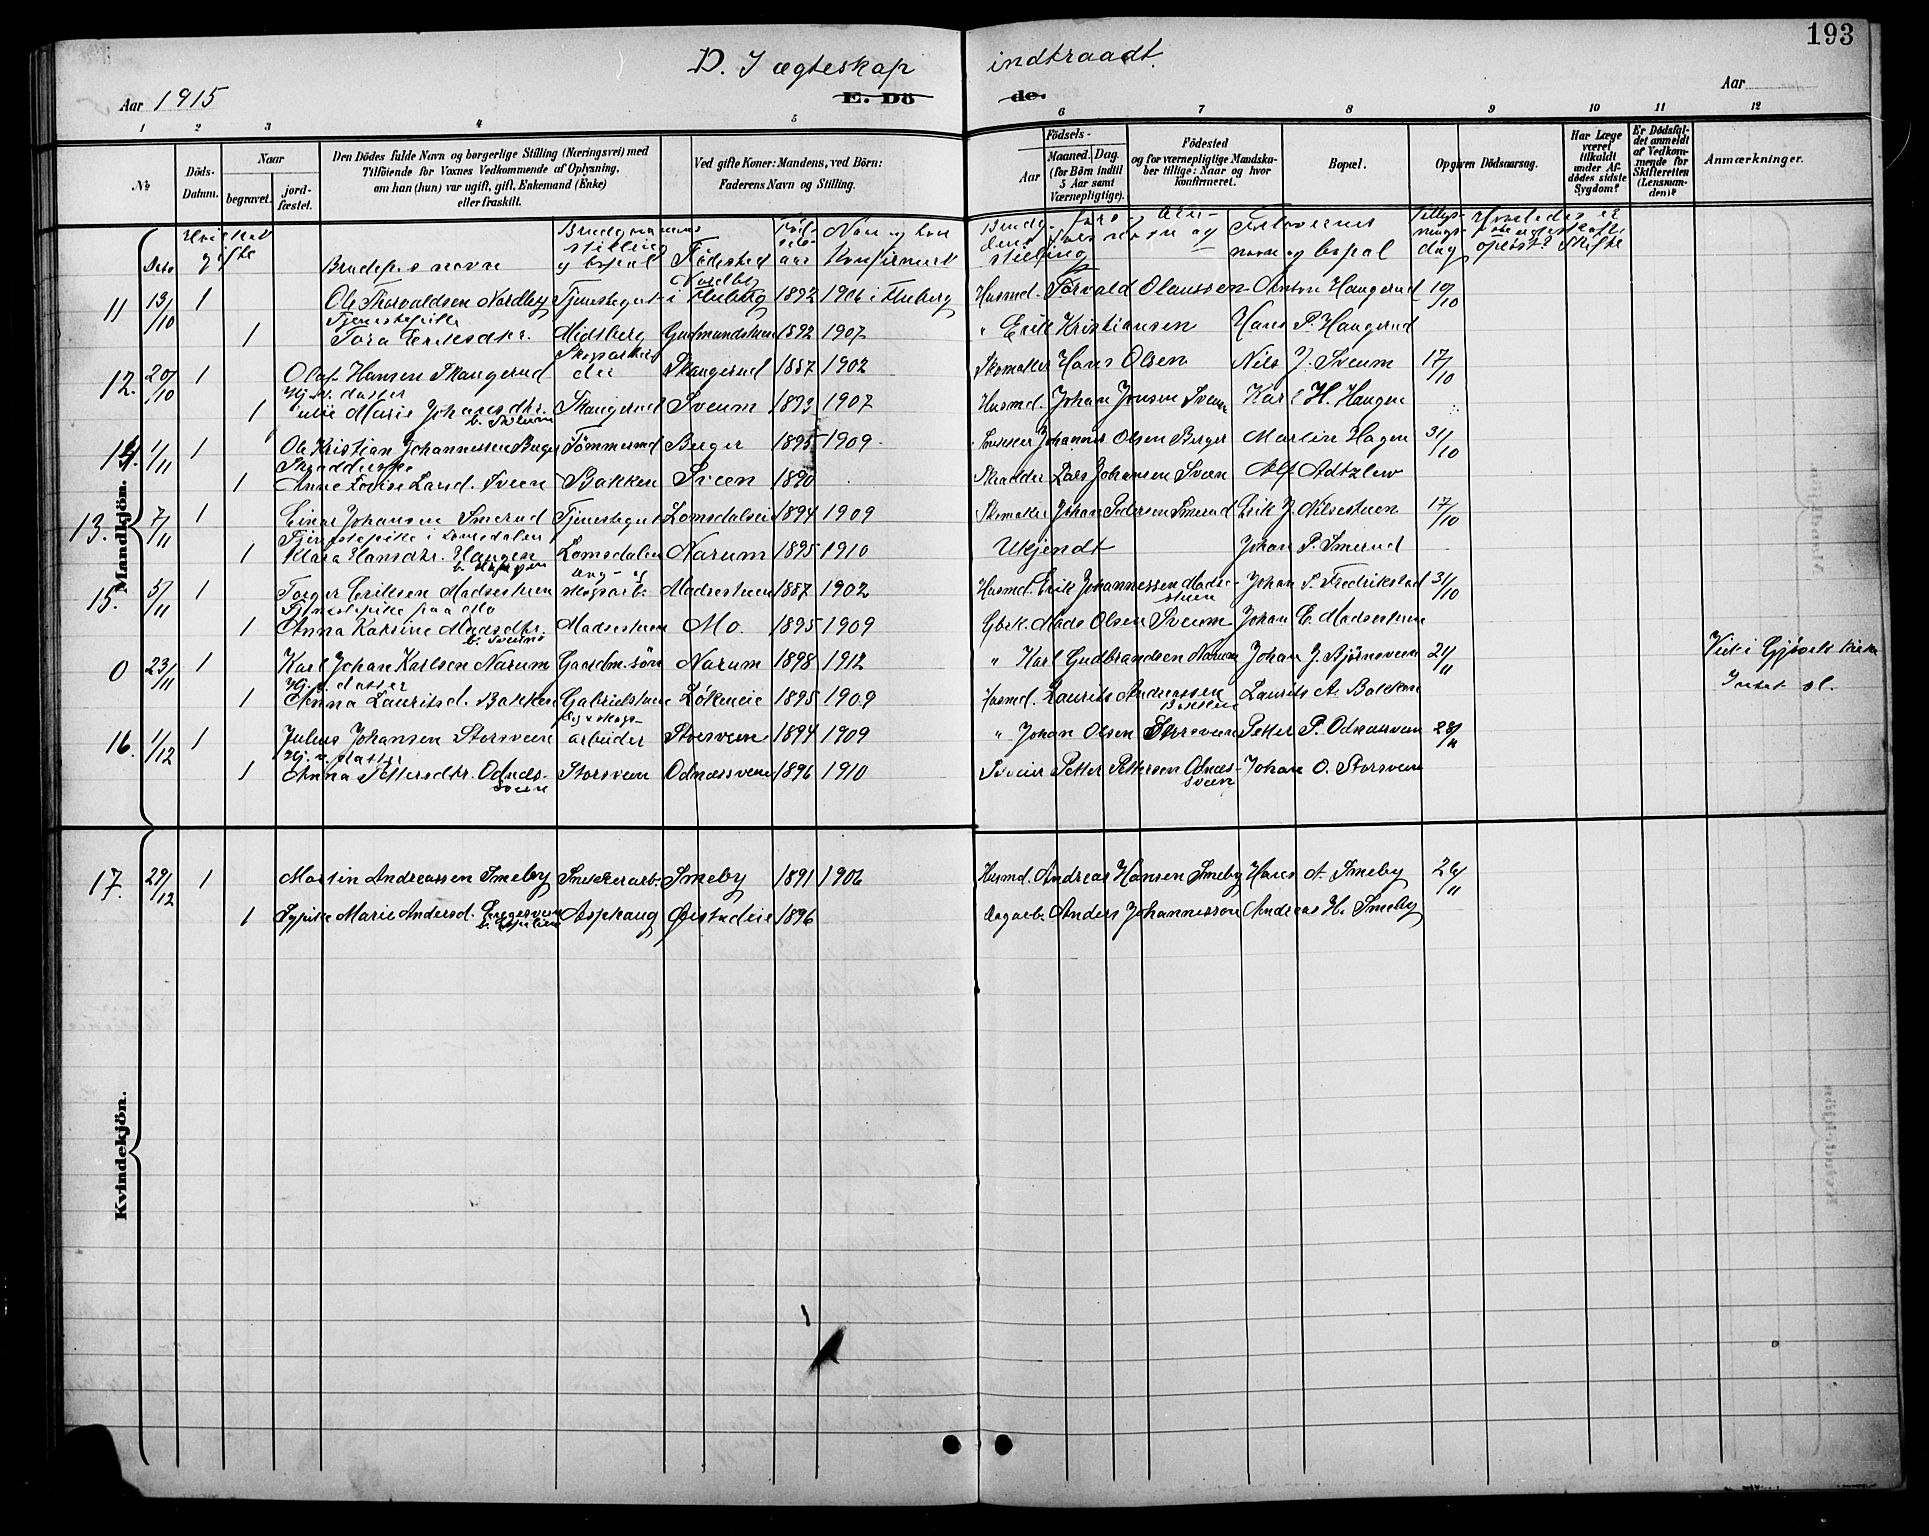 193
D. I ægteskap indtraadt.
Aar 1915
E. Dö de.
Aar
1 2 3 4 5 6 7 8 9 10 11 12
No
Döds-Datum.
Naar begravet. jordfæstet.
Den Dödes fulde Navn og borgerlige Stilling (Næringsvei) med Tilföiende for Voxnes Vedkommende af Oplysning, om han (hun) var ugift, gift, Enkemand (Enke) eller fraskilt.
Ved gifte Koner: Mandens, ved Börn: Faderens Navn og Stilling.
Födsels-
Aar
Maaned. Dag.
(for Börn indtil 5 Aar samt Værnepligtige).
Födested og for værnepligtige Mandskaber tillige: Naar og hvor konfirmeret.
Bopæl.
Opgiven Dödsaarsag.
Har Læge været tilkaldt under Afdödes sidste Sygdom?
Er Dödsfaldet anmeldt af Vedkommende for Skifteretten (Lensmanden)?
Anmærkninger.
Dato gifte Brudefolks navne Brudgommens stilling og bopæl Födested Födselsaar Naar og hvor konfirmeret stilling Forlovernes navne og bopæl Tillysningsdag
Mandkjön.
11 13/10 1 Ole Thorvaldsen Nordby Tjenestegut i Fluberg Nordby 1892 1906 i Fluberg Husmd. Torvald Olaussen Anton Haugerud 10/10
Tjenestepike
1 Tora Eriksdtr. Midsberg Gudmundsteen 1892 1907 " Erik Kristiansen Hans P. Haugerud
12. 20/10 1 Olaf Hansen Skaugerud Skogsarbeider Skaugerud 1887 1902 Skomaker Hans Olsen Nils J. Sveum 17/10
Hj.v. datter
1 Julie Marie Johansdtr. b. Sveum Skaugerud Sveum 1893 1907 Husmd. Johan Jonsen Sveum Karl H. Haugen
14. 1/11 1 Ole Kristian Johannessen Berger Tömmerud Berger 1895 1909 Snekker Johannes Olsen Berger Martin Hagen 31/10
1 Anne Lovise Larsd. Sveen Bakken Sveen 1890 Skrædder Lars Johansen Sveen
13. 7/11 1 Einar Johansen Smerud Tjenestegut Lomsdalseie 1894 1909 Skomaker Johan Pedersen Smerud Erik J. Nilsesteen 17/10
Tjenestepike i Lomsdalen
1 Klara Hansdtr. Haugen Lomsdalen Narum 1895 1910 Ukjendt Johan P. Smerud
15. 5/11 1 Torger Eriksen Madsesteen skogsarb. Madsesteen 1887 1902 Husmd. Erik Johannessen Madsesteen Johan P. Fredrikstad 31/10
Tjenestepike paa Mo
1 Anna Katrine Madsdtr. b. Sveum Madsesteen Mo. 1895 1909 Gbr. Mads Olsen Sveum Johan E. Madsesteen
0 23/11 1 Karl Johan Karlsen Narum Gaardm.sön Narum 1898 1912 " Karl Gudbrandsen Narum Johan J. Björnsveen 21/11 Viet i Gjövik kirke
Hj.v. datter
1 Anna Lauritsd. Bakken Gabrielsteen Lökeneie 1895 1909 Husmd. Laurits Andreassen Bakken Laurits A. Bakken
16. 1/12 1 Julius Johansen Storsveen arbeider Storsveen 1894 1909 " Johan Olsen Storsveen Petter P. Odnæssveen 28/11
Hj.v. datter
1 Anna Pettersdtr. Odnæssveen Storsveen Odnæssveen 1896 1910 Sveier Petter Pettersen Odnæssveen Johan O. Storsveen
Kvindekjön.
17. 29/12 1 Martin Andreassen Smeby Snekkerarb. Smeby 1891 1906 Husmd. Andreas Hansen Smeby Hans A. Smeby 26/11
1 Sypike Marie Andersd. Asphaug Öistadeie 1896 Dagarb. Anders Johannessen Andreas H. Smeby